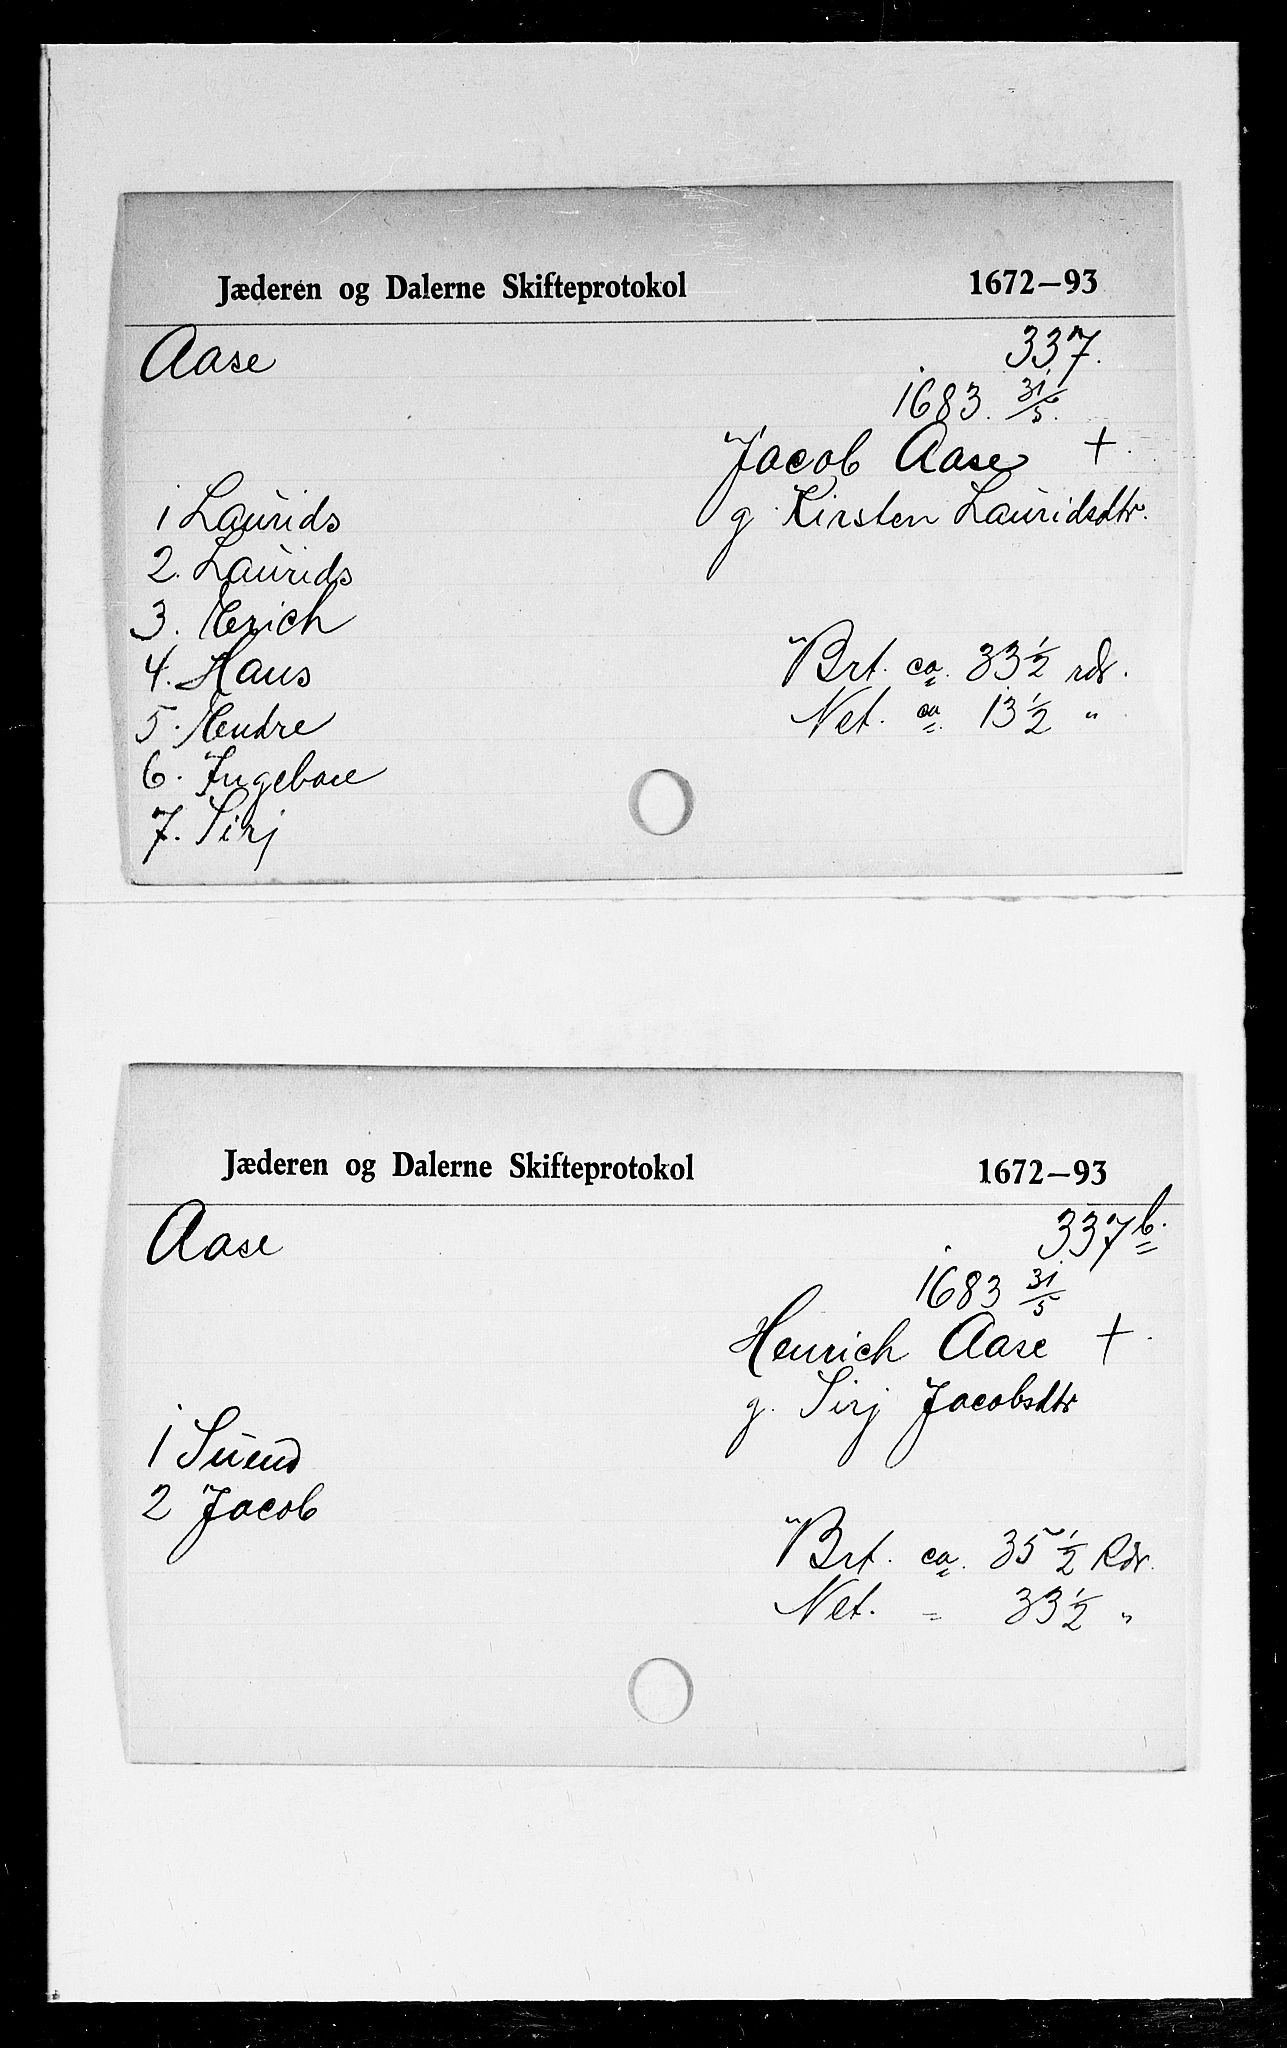 Jæderen og Dalerne Skifteprotokol 1672–93
Aase 337.
1683. 31/5.
Jacob Aase +.
g. Kirsten Lauridsdtr.
1 Laurids
2. Laurids
3. Erich
4. Hans
5. Endre
6. Ingebore
7. Sirj
Brt. ca. 33 1/2 rdr.
Net. ca. 13 1/2 "
Jæderen og Dalerne Skifteprotokol 1672–93
Aase 337 b.
1683 31/5
Henrich Aase +.
g. Sirj Jacobsdtr
1 Suend
2 Jacob
Brt. ca. 35 1/2 Rdr.
Net. = 33 1/2 "